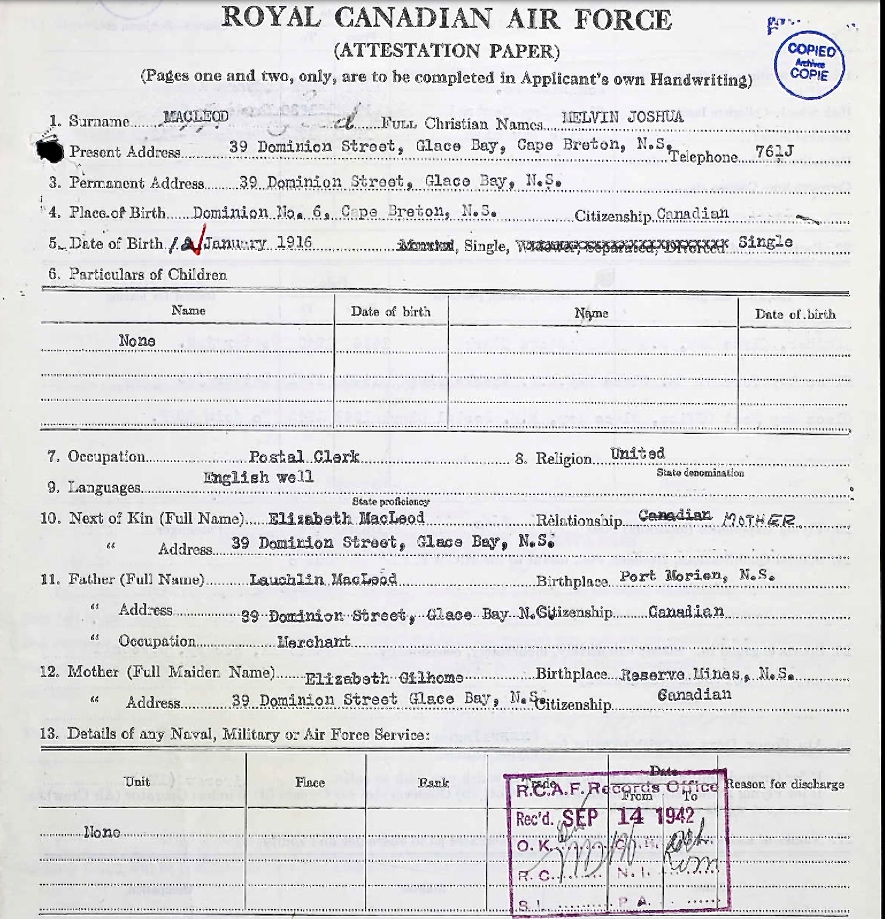 ROYAL CANADIAN AIR FORCE
(ATTESTATION PAPER)
(Pages one and two, only, are to be completed in Applicant's own Handwriting)
COPIED
Archives
COPIE
1. Surname MACLEOD FULL Christian Names MELVIN JOSHUA
Present Address 39 Dominion Street, Glace Bay, Cape Breton, N.S. Telephone 761J
3. Permanent Address 39 Dominion Street, Glace Bay, N.S.
4. Place of Birth Dominion No. 6, Cape Breton, N.S. Citizenship Canadian
5. Date of Birth 12 January 1916 Married, Single, Widower, Separated, Divorced Single
6. Particulars of Children
Name Date of birth Name Date of birth
None
7. Occupation Postal Clerk 8. Religion United
State denomination
9. Languages English well
State proficiency
10. Next of Kin (Full Name) Elizabeth MacLeod Relationship Canadian MOTHER
" Address 39 Dominion Street, Glace Bay, N.S.
11. Father (Full Name) Lauchlin MacLeod Birthplace Port Morien, N.S.
" Address 39 Dominion Street, Glace Bay N.S. Citizenship Canadian
" Occupation Merchant
12. Mother (Full Maiden Name) Elizabeth Gilhome Birthplace Reserve Mines, N.S.
" Address 39 Dominion Street Glace Bay, N.S. Citizenship Canadian
13. Details of any Naval, Military or Air Force Service:
Unit Place Rank Trade Date From To Reason for discharge
None
R.C.A.F. Records Office
Rec'd. SEP 14 1942
O.K.
R.C. N.I.
S.I. P.A.